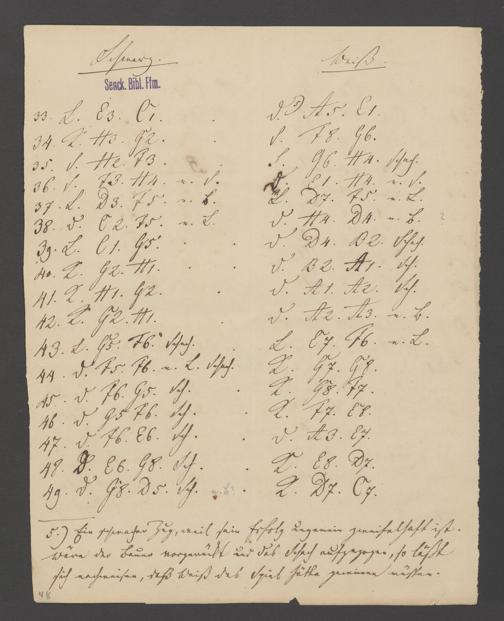 Schwarz. Weiß.
Senck. Bibl. Ffm.
33. L. E3. C1. D. A5. E1.
34. K. H3. G2. S. F8. G6.
35. S. H2. F3. S. G6. H4. Schach.
36. S. F3. H4. n. S. D. E1. H4. n. S.
37. L. D3. F5. n. B. L. D7. F5. n. L.
38. D. C2. F5. n. L. D. H4. D4. n. B.
39. L. C1. G5. D. D4. B2. Schach.
40. K. G2. H1. D. B2. A1. Sch.
41. K. H1. G2. D. A1. A2. Sch.
42. K. G2. H1. D. A2. A3. n. B.
43. L. G5. F6. Schach. L. E7. F6. n. L.
44. D. F5. F6. n. L. Schach. K. G7. G8.
45. D. F6. G5. Sch. K. G8. F7.
46. D. G5. F6. Sch. K. F7. E8.
47. D. F6. E6. Sch. D. A3. E7.
48. D. E6. G8. Sch. K. E8. D7.
49. D. G8. D5. Sch. K. D7. C7.
5.) Ein schwacher Zug, weil sein Erfolg ungemein zweifelhaft ist.
Wäre der Bauer vorgerückt und das Schach aufgezogen, so läßt
sich nachweisen, daß Weiß das Spiel hätte gewinnen müssen.